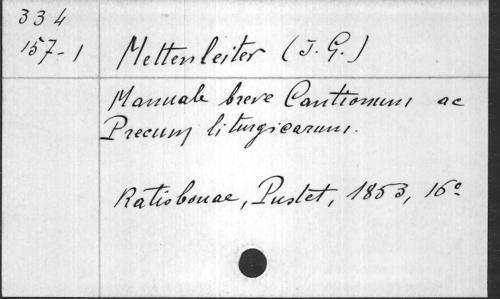 334
157-1
Mettenleiter (J. G.)
Manuale breve Cantionum ac
Precum liturgicarum.
Ratisbonae, Pustet, 1853, 16º